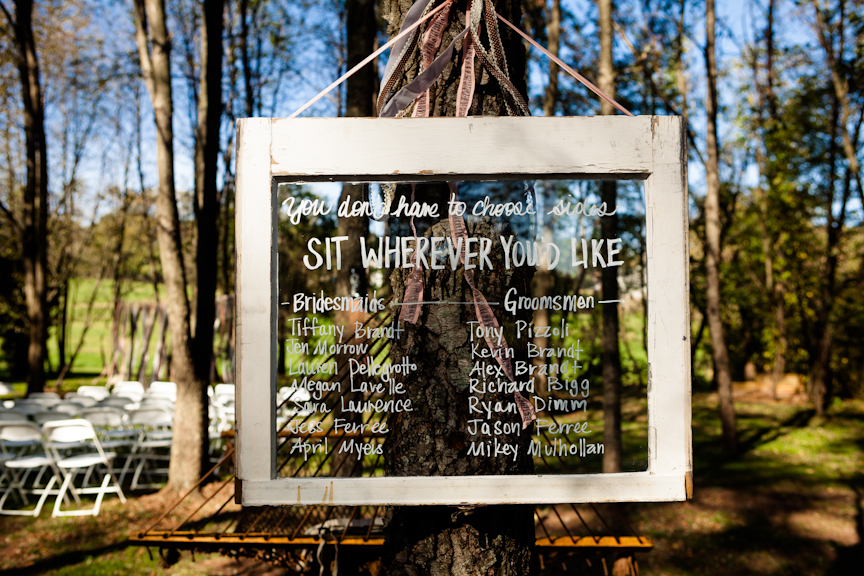 You don't have to choose sides
SIT WHEREVER YOU'D LIKE
-Bridesmaids — Groomsmen—
Tiffany Brandt Tony Pizzoli
Jen Morrow Kevin Brandt
Lauren Dellegrotto Alex Brandt
Megan Lavelle Richard Bigg
Sara Laurence Ryan Dimm
Jess Ferree Jason Ferree
April Myers Mikey Mulhollan